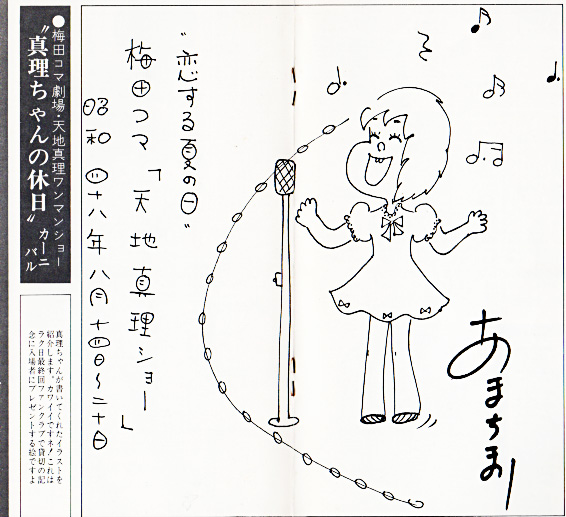 ●梅田コマ劇場・天地真理ワンマンショー
"真理ちゃんの休日" カーニバル
"恋する夏の日"
梅田コマ「天地真理ショー」
昭和四十八年八月十四日~二十日
あまちまり
真理ちゃんが書いてくれたイラストを
紹介します。カワイイですネ!これは
ラク日最終回ファンクラブで貸切の記
念に入場者にプレゼントする絵ですよ